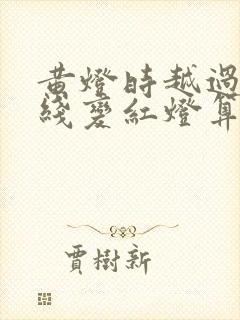 黄燈時越過
綫變紅燈算
賈樹新